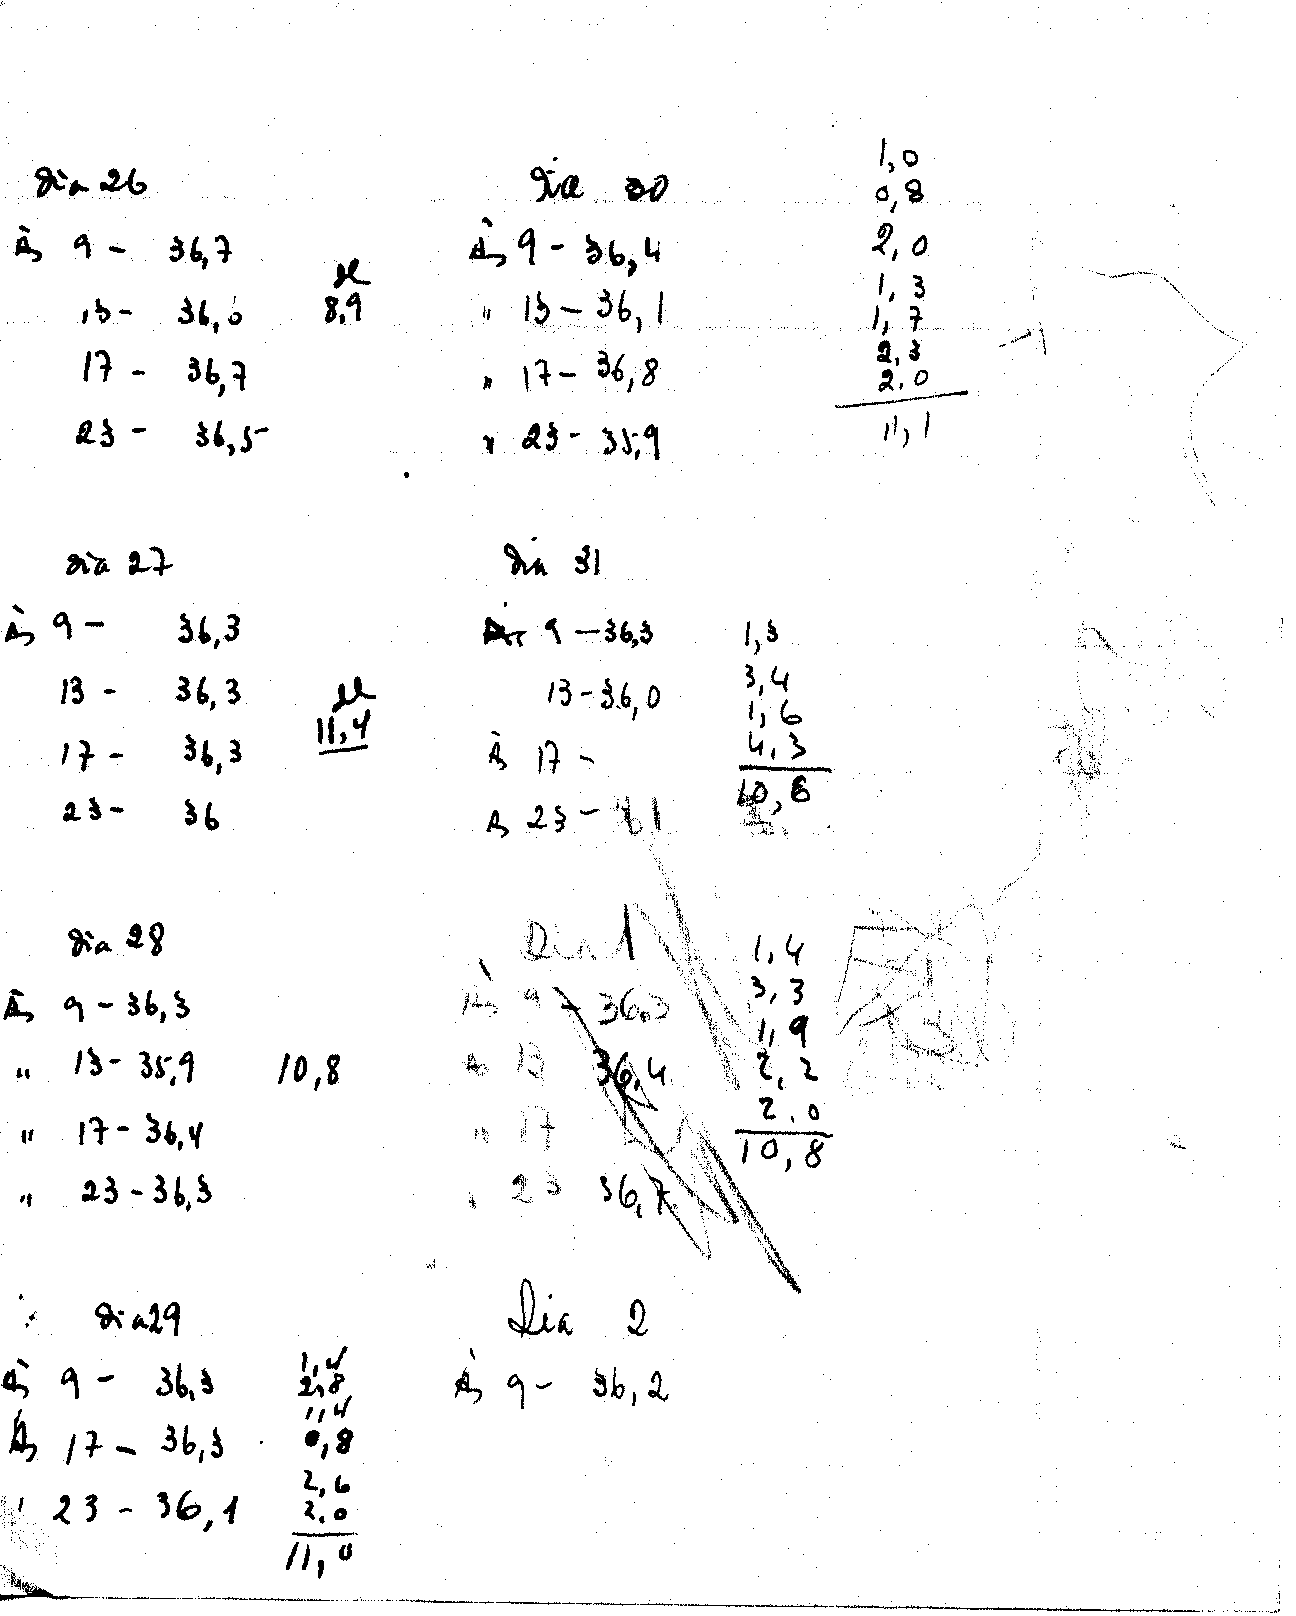 Dia 26
Às 9 - 36,7
13 - 36,6
17 - 36,7
23 - 36,5
8,9
Dia 27
Às 9 - 36,3
13 - 36,3
17 - 36,3
23 - 36
11,4
Dia 28
Às 9 - 36,3
" 13 - 35,9
" 17 - 36,4
" 23 - 36,3
10,8
Dia 29
Às 9 - 36,3
Às 17 - 36,3
" 23 - 36,1
1,4
2,8
1,4
0,8
2,6
2,0
11,0
Dia 30
Às 9 - 36,4
" 13 - 36,1
" 17 - 36,8
" 23 - 35,9
1,0
0,8
2,0
1,3
1,7
2,3
2,0
11,1
Dia 31
Às 9 - 36,3
13 - 36,0
Às 17 -
Às 23 -
1,3
3,4
1,6
4,3
10,6
Dia 1
Às 9 - 36,3
Às 13 36,4
" 17
" 23 36,7
1,4
3,3
1,9
2,2
2,0
10,8
Dia 2
Às 9 - 36,2